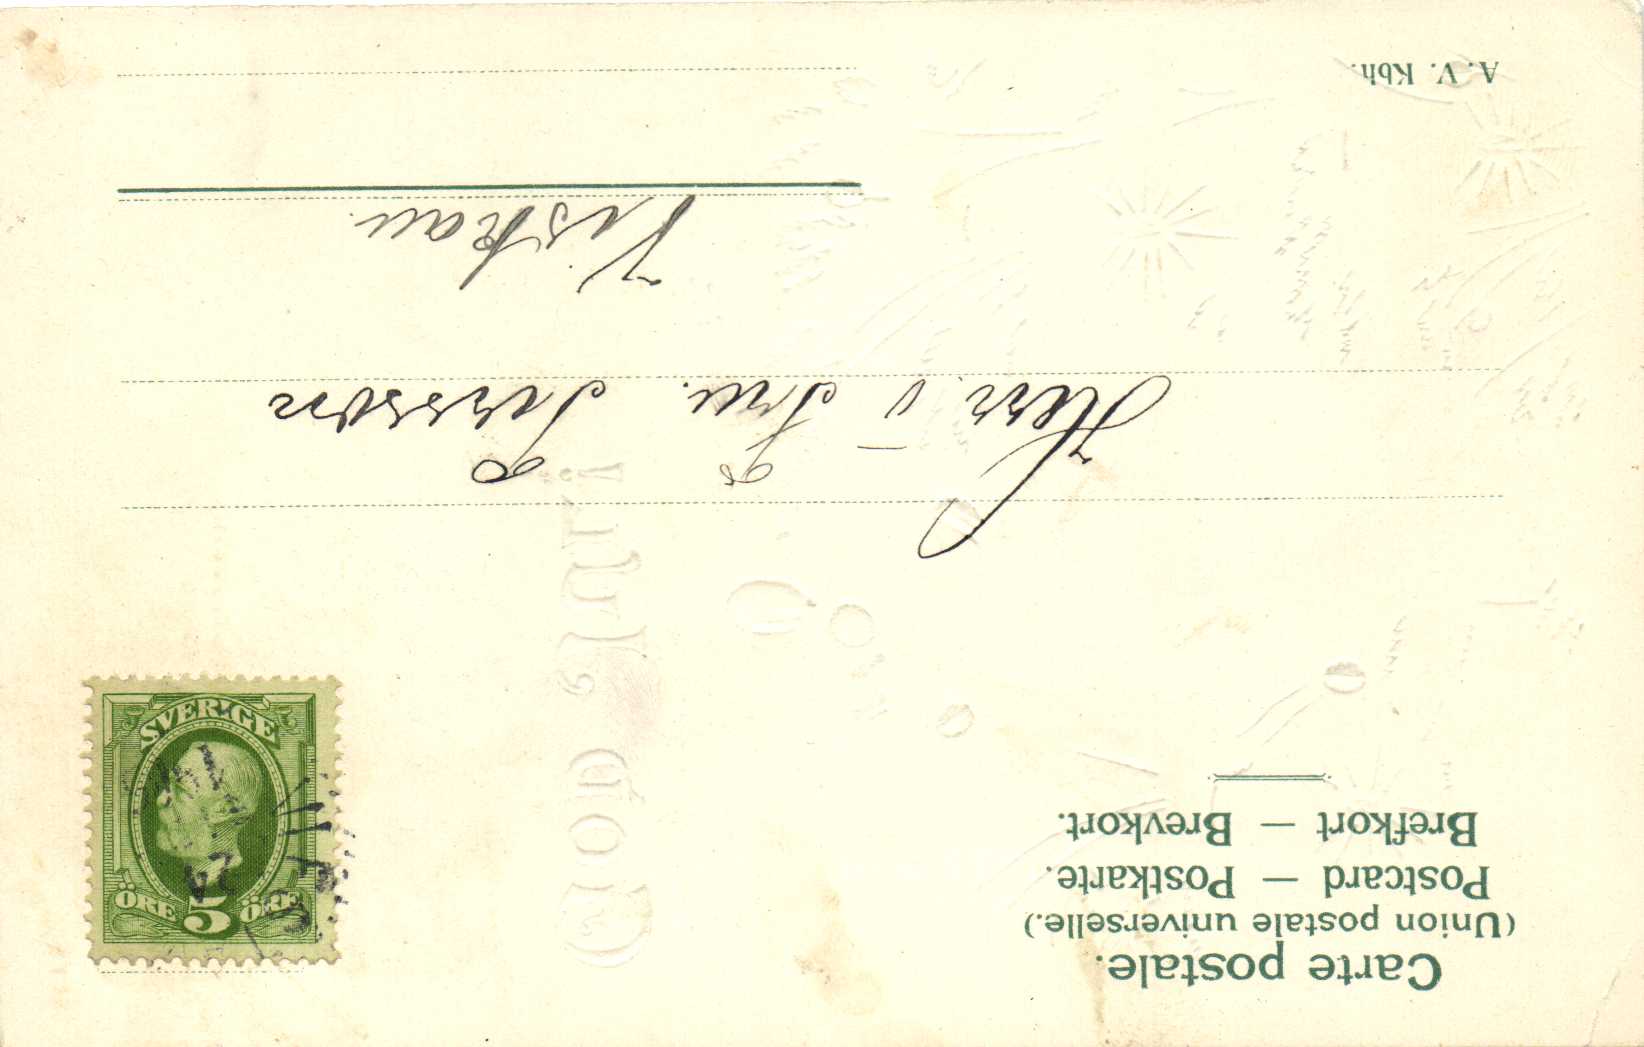 Carte postale.
(Union postale universelle.)
Postcard — Postkarte.
Brefkort — Brevkort.
Herr o Fru.
Viskan.
A. V. Kbh.
SVERIGE
24
ÖRE 5 ÖRE
God Jul!